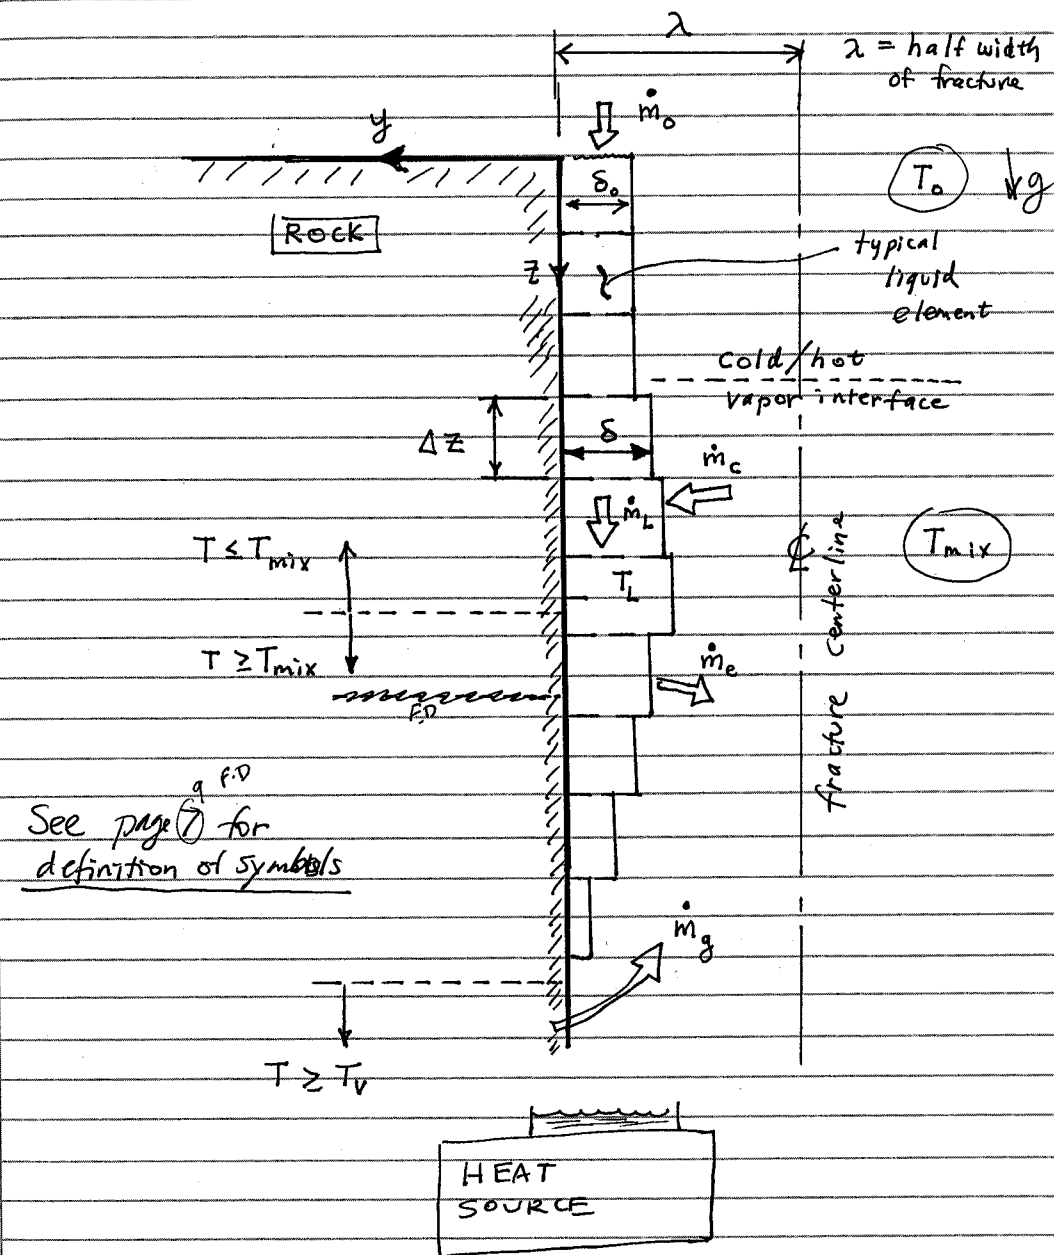 λ
λ = half width
of fracture
ṁ₀
y
T₀
↓g
δ₀
ROCK
z
typical
liquid
element
cold/hot
vapor interface
Δz
δ
ṁ_c
ṁ_L
T ≤ T_mix
T_L
T_mix
℄
fracture centerline
T ≥ T_mix
ṁ_e
F.D
9 F.D
See page 7 for
definition of symbols
ṁ_g
T ≥ T_v
HEAT
SOURCE